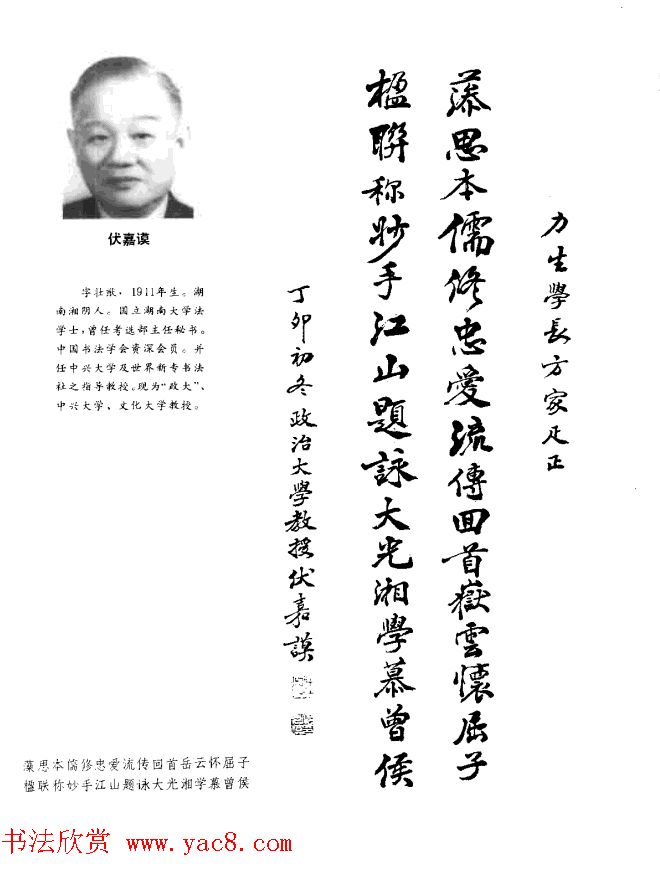 力生學長方家疋正
藻思本儒修忠愛流傳回首嶽雲懷屈子
楹聯称妙手江山題詠大光湘學慕曾侯
丁卯初冬政治大學教授伏嘉謨
伏嘉谟
字壮猷，1911年生。湖
南湘阴人。国立湖南大学法
学士，曾任考选部主任秘书。
中国书法学会资深会员。并
任中兴大学及世界新专书法
社之指导教授。现为“政大”、
中兴大学、文化大学教授。
藻思本儒修忠爱流传回首岳云怀屈子
楹联称妙手江山题咏大光湘学慕曾侯
书法欣赏 www.yac8.com